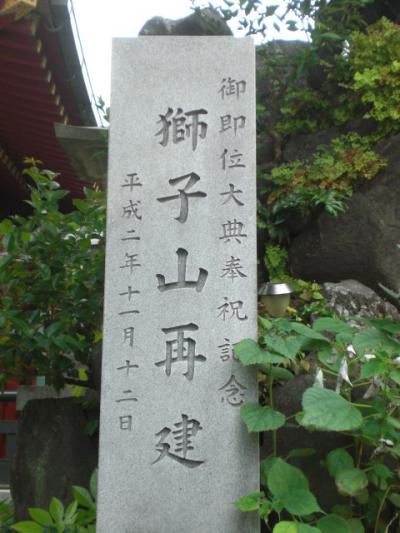 御即位大典奉祝記念
獅子山再建
平成二年十一月十二日